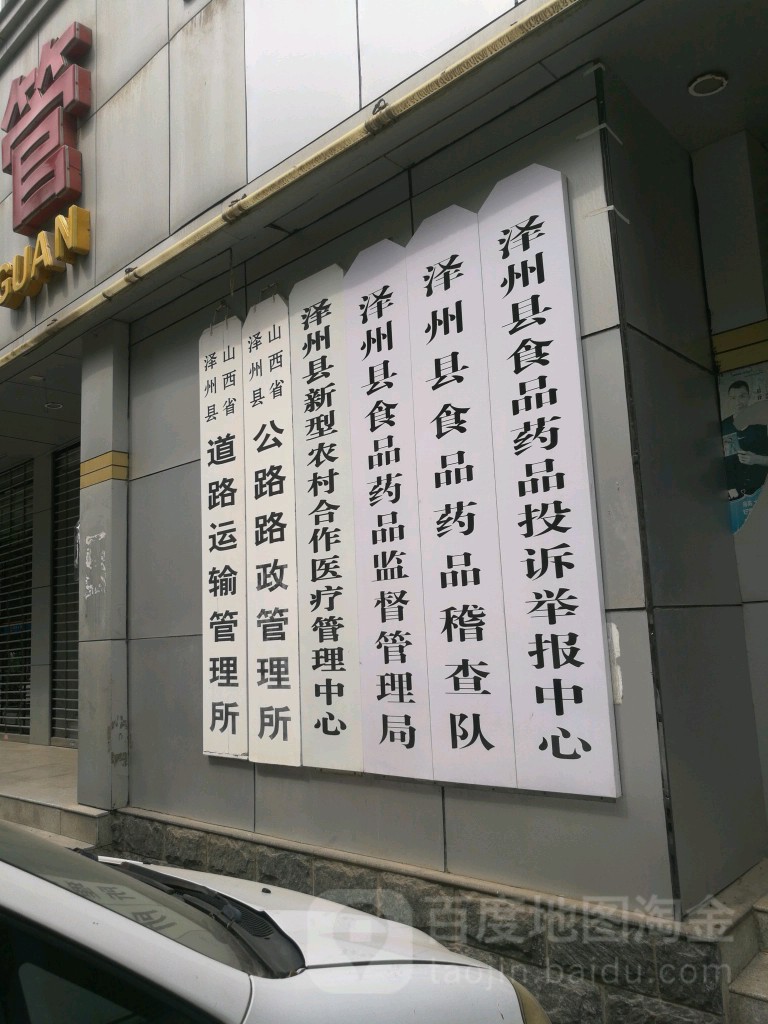 管
GUAN
山西省
泽州县
道路运输管理所
山西省
泽州县
公路路政管理所
泽州县新型农村合作医疗管理中心
泽州县食品药品监督管理局
泽州县食品药品稽查队
泽州县食品药品投诉举报中心
百度地图淘金
taojin.baidu.com